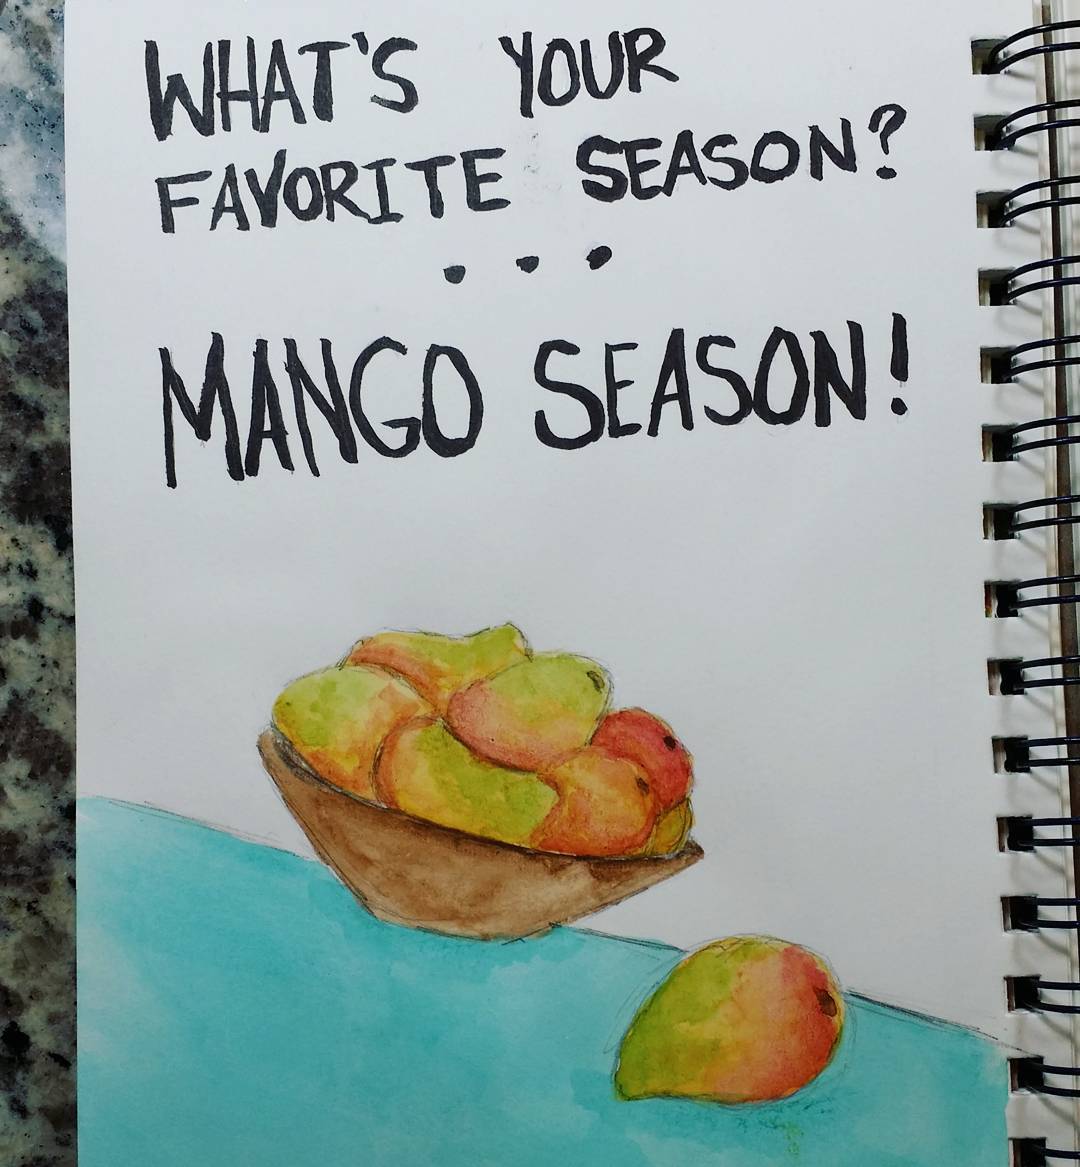 WHAT'S YOUR
FAVORITE SEASON?
...
MANGO SEASON!